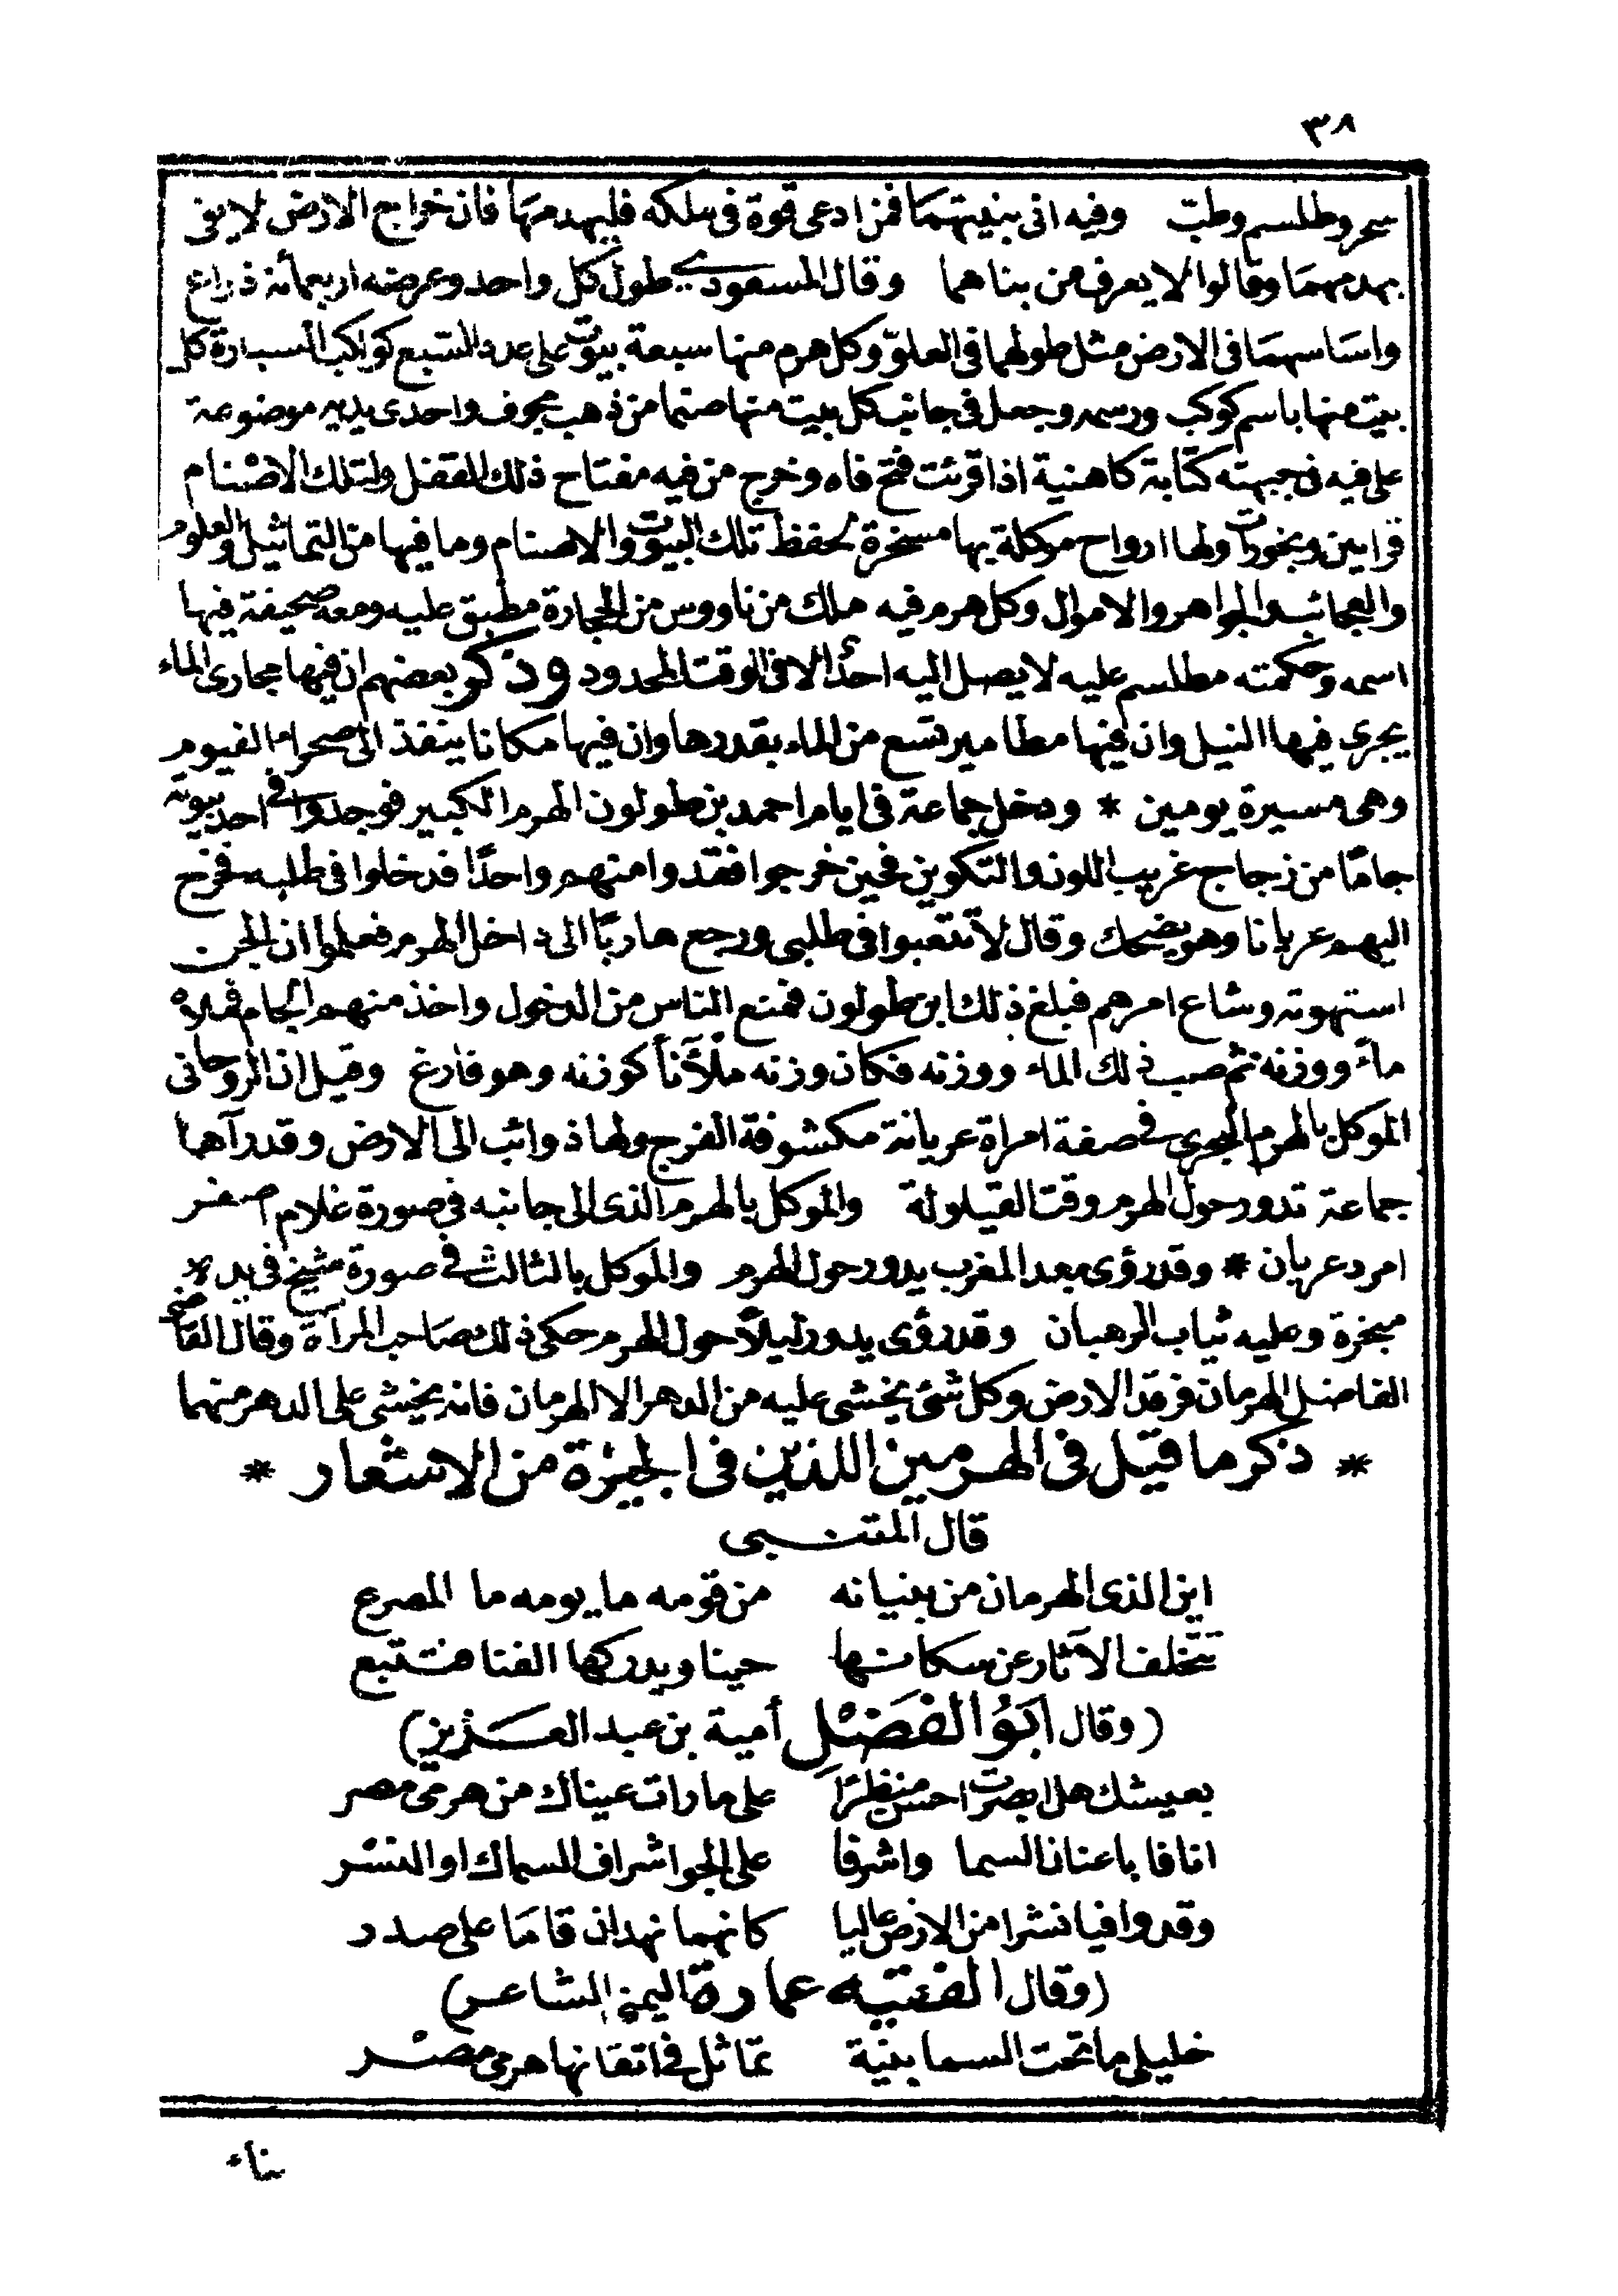 ٣٨
سحر وطلسم وطب وفيه انى بنيتهما فمن ادعى قوة فى ملكه فليهدمها فان خراج الارض لا يفى
بهدمهما وقالوا لا يعرف من بناهما وقال المسعودي طول كل واحد وعرضه اربعمائة ذراع
واساسهما فى الارض مثل طولهما فى العلو وكل هرم منها سبعة بيوت على عدد السبع كواكب السيارة كل
بيت منها باسم كوكب ورسمه وجعل فى جانب كل بيت منها صنما من ذهب مجوف واحدى يديه موضوعة
على فيه فى جبهته كتابة كاهنية اذا قرئت فتح فاه وخرج من فيه مفتاح ذلك القفل ولتلك الاصنام
قرابين وبخورات ولها ارواح موكلة بها مسخرة لحفظ تلك البيوت والاصنام وما فيها من التماثيل والعلوم
والعجائب والجواهر والاموال وكل هرم فيه ملك من ناووس من الحجارة مطبق عليه ومعه صحيفة فيها
اسمه وحكمته مطلسم عليه لا يصل اليه احد الا فى الوقت المحدود وذكر بعضهم ان فيها مجارى الماء
يجرى فيها النيل وان فيها مطامير تسع من الماء بقدرها وان فيها مكانا ينفذ الى صحراء الفيوم
وهى مسيرة يومين * ودخل جماعة فى ايام احمد بن طولون الهرم الكبير فوجدوا فى احد بيوته
جاما من زجاج غريب اللون والتكوين فحين خرجوا فقدوا منهم واحدا فدخلوا فى طلبه فخرج
اليهم عريانا وهو يضحك وقال لا تتعبوا فى طلبى ورجع هاربا الى داخل الهرم فعلموا ان الجن
استهوته وشاع امرهم فبلغ ذلك ابن طولون فمنع الناس من الدخول واخذ منهم الجام فملاه
ماء ووزنه ثم صب ذلك الماء ووزنه فكان وزنه ملآنا كوزنه وهو فارغ وقيل ان الروحانى
الموكل بالهرم البحرى فى صفة امراة عريانة مكشوفة الفرج ولها ذوائب الى الارض وقد رآها
جماعة تدور حول الهرم وقت القيلولة والموكل بالهرم الذى الى جانبه فى صورة غلام اصفر
امرد عريان * وقد رؤى بعد المغرب يدور حول الهرم والموكل بالثالث فى صورة شيخ فى يده
مبخرة وعليه ثياب الرهبان وقد رؤى يدور ليلا حول الهرم حكى ذلك صاحب المرآة وقال القاضى
الفاضل الهرمان فرقد الارض وكل شئ يخشى عليه من الدهر الا الهرمان فانه يخشى على الدهر منهما
* ذكر ما قيل فى الهرمين اللذين فى الجيزة من الاشعار *
قال المتنبى
اين الذى الهرمان من بنيانه من قومه ما يومه ما المصرع
تتخلف الآثار عن سكانها حينا ويدركها الفنا فتتبع
(وقال ابو الفضل أمية بن عبد العزيز)
بعيشك هل ابصرت احسن منظرا على ما رات عيناك من هرمى مصر
انافا باعنان السما واشرفا على الجو اشراف السماك او النسر
وقد وافيا نشرا من الارض عاليا كانهما نهدان قاما على صدر
(وقال الفقيه عمارة اليمنى الشاعر)
خليلى ما تحت السما بنية تماثل فى اتقانها هرمى مصر
بناء